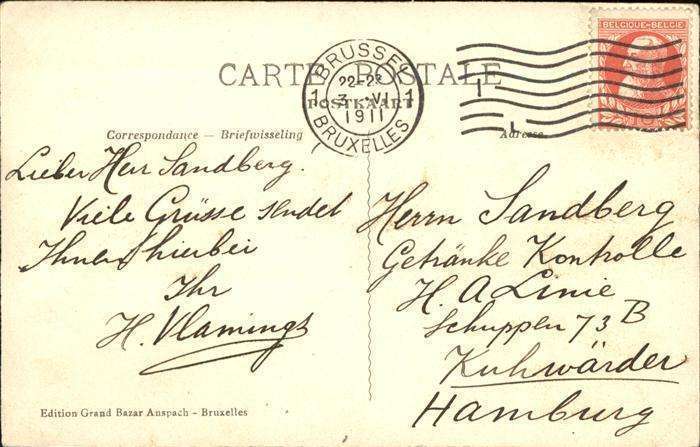 CARTE POSTALE
POSTKAART
BRUSSEL
1 22-23 1
3 VI
1911
BRUXELLES
BELGIQUE-BELGIE
Correspondance — Briefwisseling
Adresse
Lieber Herr Sandberg.
Viele Grüsse sendet
Ihnen hierbei
Ihr
H. Vlamings
Herrn Sandberg
Getränke Kontrolle
H. A Linie
Schuppen 73 B
Kuhwärder
Hamburg
Edition Grand Bazar Anspach - Bruxelles